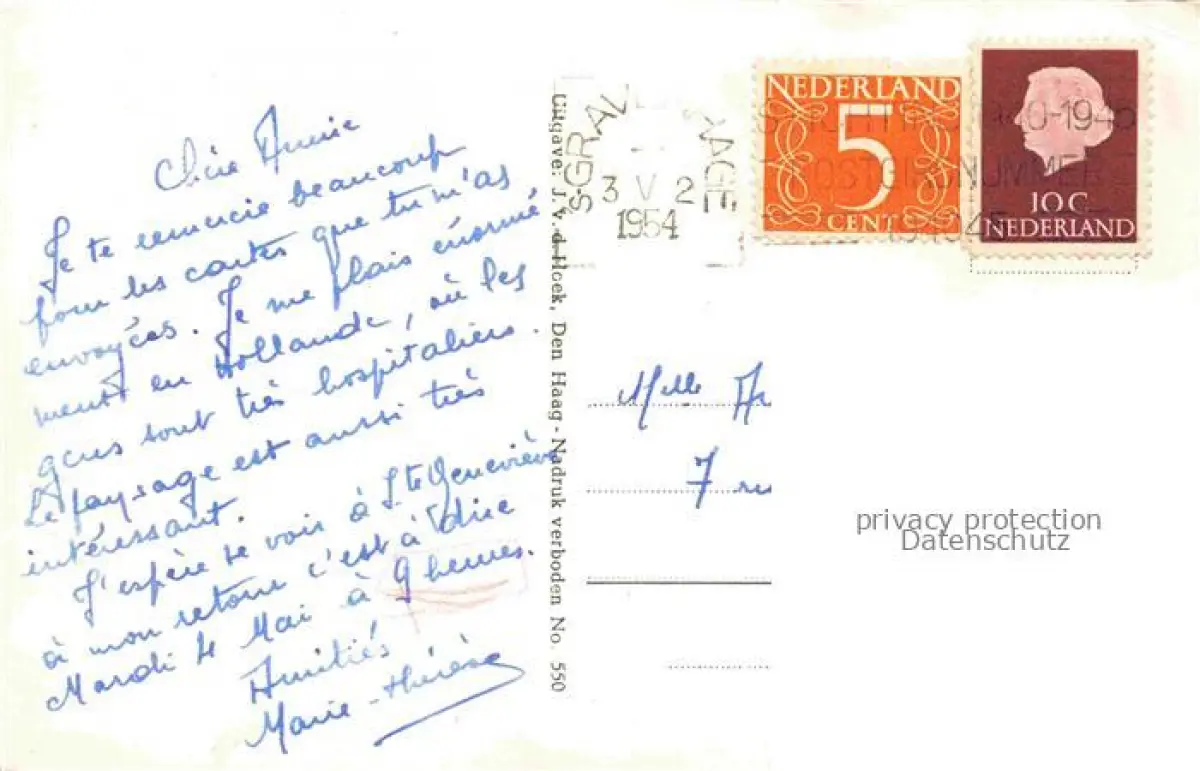 Chère Annie
Je te remercie beaucoup
pour les cartes que tu m'as
envoyées. Je me plais énormé
ment en Hollande, où les
gens sont très hospitaliers.
Le paysage est aussi très
intéressant.
J'espère te voir à Ste Geneviève
à mon retour c'est à dire
Mardi 4 Mai à 9 heures.
Amitiés
Marie-Thérèse
Uitgave: J. v. d. Hoek, Den Haag - Nadruk verboden No. 550
'S-GRAVENHAGE
3 V 2
1954
NEDERLAND
5
CENT
10 C
NEDERLAND
1940-1945
POSTGIRONUMMER
194045
Melle
7
privacy protection
Datenschutz